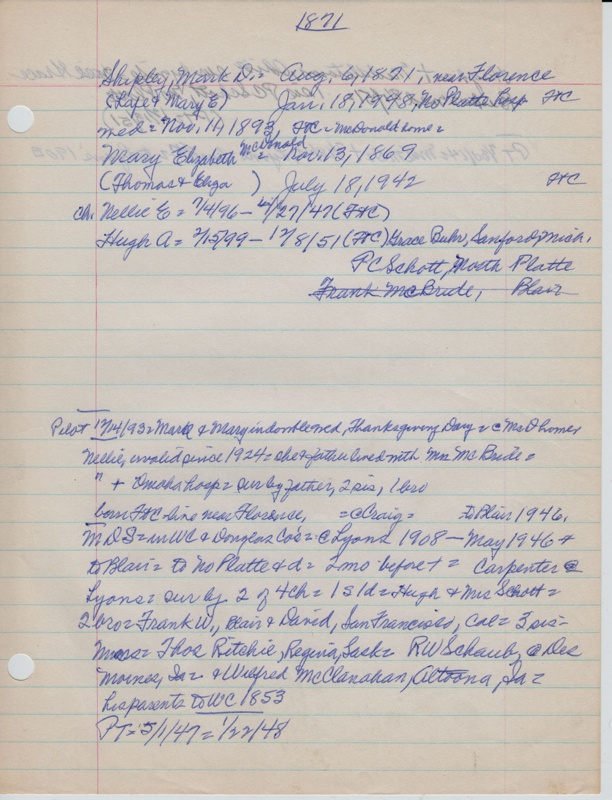 1871
Shipley, Mark D. = Aug, 6, 1871, near Florence
(Lape & Mary E) Jan, 18, 1948, No Platte hosp FtC
med = Nov, 11, 1893, FtC = McDonald home =
Mary Elizabeth McDonald = Nov. 13, 1869
(Thomas & Eliza ) July 18, 1942 FtC
ch. Nellie E = 7/4/96 - 27/47 (FtC)
Hugh A = 2/15/99 - 12/8/51 (FtC) Grace Buhr, Sanford, Mich.
PC Schott, North Platte
Frank McBride, Blair
Pilot 12/14/93 = Mark & Mary in double wed, Thanksgiving Day = @ McD home,
Nellie, invalid since 1924 = she & father lived with Mrs McBride =
" + Omaha hosp = sur by father, 2 sis, 1 bro
born FtC = line near Florence, = @ Craig = to Blair 1946,
MDS = in WC & Douglas Co's = @ Lyons 1908 - May 1946 &
to Blair = to No Platte & d = 2 mo before + = Carpenter @
Lyons = sur by 2 of 4 ch = 1s 1d = Hugh & Mrs Schott =
2 bro = Frank W., Blair & David, San Francisco, Cal = 3 sis =
Mmes = Thos Ritchie, Regina, Sask = RW Schaub, @ Des
Moines, Ia = & Wilfred McClanahan, Altoona, Ia =
his parents to WC 1853
PT = 5/1/47 = 1/22/48